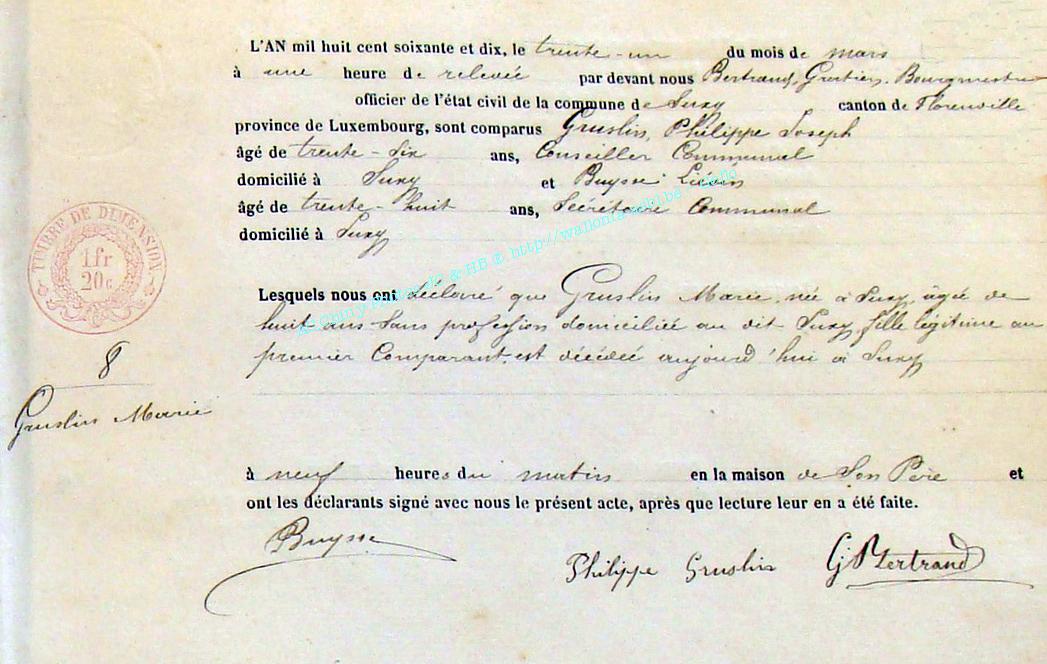 L'AN mil huit cent soixante et dix, le trente-un du mois de mars
à une heure de relevée par devant nous Bertrand, Bourgmestre
officier de l'état civil de la commune de Suxy canton de Florenville
province de Luxembourg, sont comparus Gruslin, Philippe Joseph
âgé de trente-six ans, Conseiller Communal
domicilié à Suxy et Buysse
âgé de trente-huit ans, Secrétaire Communal
domicilié à Suxy
TIMBRE DE DIMENSION.
1 fr
20 c
Lesquels nous ont déclaré que Gruslin Marie, née à Suxy, âgée de
huit ans sans profession domiciliée au dit Suxy, fille légitime au
premier Comparant, est décédée aujourd'hui à Suxy
8
Gruslin Marie
à neuf heures du matin en la maison de Son Père et
ont les déclarants signé avec nous le présent acte, après que lecture leur en a été faite.
Buysse
Philippe Gruslin GJ Bertrand
& HB @ http://wallonia-